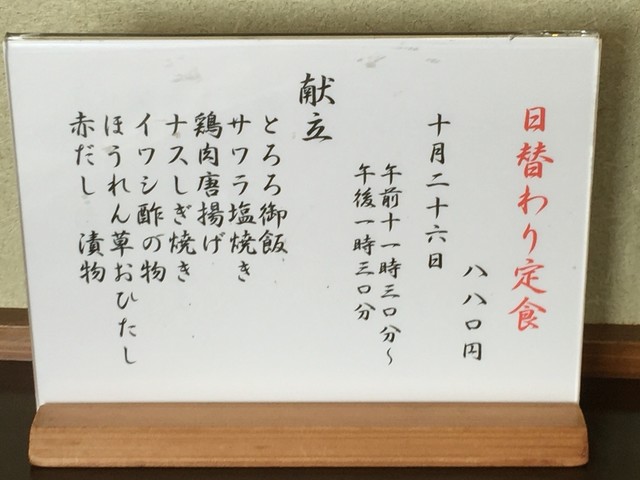 日替わり定食
八八〇円
十月二十六日
午前十一時三〇分～
午後一時三〇分
献立
とろろ御飯
サワラ塩焼き
鶏肉唐揚げ
ナスしぎ焼き
イワシ酢の物
ほうれん草おひたし
赤だし 漬物